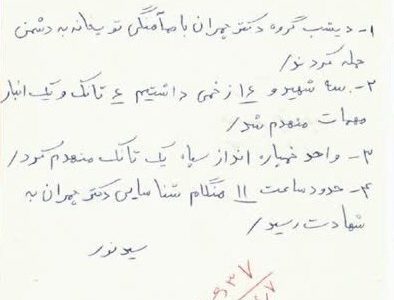 ۱- دیشب گروه دکتر چمران با هماهنگی توپخانه به دشمن
حمله کردند/
۲- سه شهید و ۱۶ زخمی داشتیم ۴ تانک و یک انبار
مهمات منهدم شد/
۳- واحد خمپاره انداز سپاه یک تانک منهدم کرد/
۴- حدود ساعت ۱۱ هنگام شناسایی دکتر چمران به
شهادت رسید/
سید نور